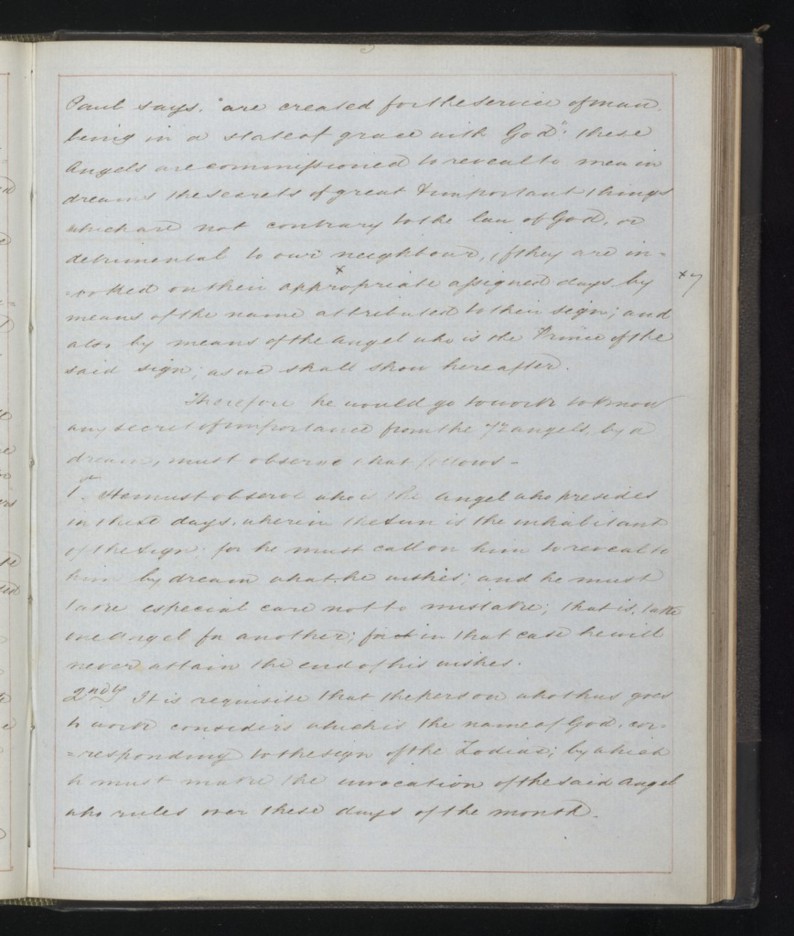 5
Paul says. "are created for the service of man
being in a state of grace with God": these
Angels are commissioned to reveal to men in
dreams the secrets of great & important things
which are not contrary to the law of God, or
detrimental to our neighbour, if they are in-
-voked on their appropriate assigned days by
x
x 7
means of the name attributed to their sign; and
also by means of the Angel who is the Prince of the
said sign; as we shall show hereafter.
Therefore he would go to work to know
any secret of importance from the 72 angels, by a
dream, must observe what follows -
1st He must observe who is the angel who presides
in those days, wherein the Sun is the inhabitant
of the Sign; for he must call on him to reveal to
him by dream what he wishes; and he must
take especial care not to mistake; that is, take
one Angel for another; for in that case he will
never attain the end of his wishes.
2ndly It is requisite that the person who thus goes
to work considers which is the name of God, cor-
=responding to the sign of the Zodiac; by which
he must make the invocation of the said Angel
who rules over these days of the month.